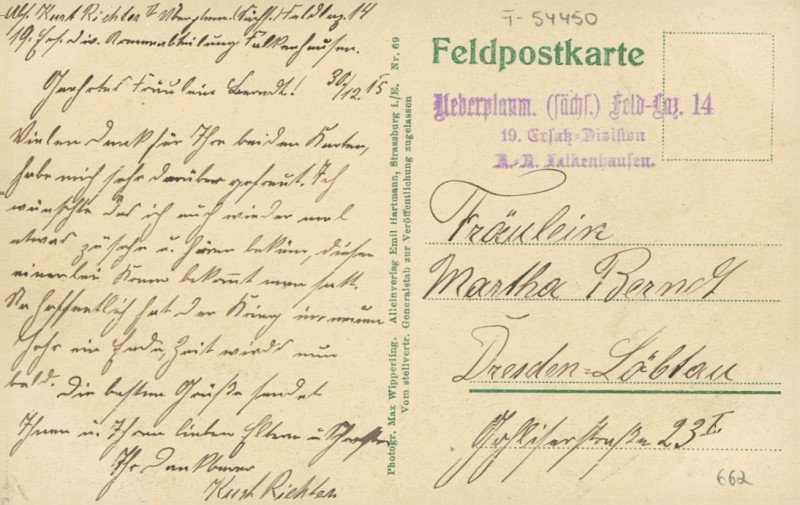 Abs. Kurt Richter b. Überplanm. (Sächs.) Feldlaz. 14
19. Ers. Div. Armeeabteilung Falkenhausen.
Geehrtes Fräulein Berndt! 30/12.15
Vielen Dank für Ihre beiden Karten,
habe mich sehr darüber gefreut. Ich
wünschte das ich auch wieder mal
etwas zu sehn u. hören bekäm, dieses
einerlei kann bekommt man satt.
Na hoffentlich hat der Krieg im neuen
Jahr ein Ende, Zeit wirds nun
bald. Die besten Grüße sendet
Ihnen u. Ihren lieben Eltern u Schwester
Ihr Dankbarer
Kurt Richter
Photogr. Max Wipperling. Alleinverlag Emil Hartmann, Strassburg i./E. Nr. 69
Vom stellvertr. Generalstab zur Veröffentlichung zugelassen
I-54450
Feldpostkarte
Ueberplanm. (sächs.) Feld-Laz. 14
19. Ersatz-Division
A.-A. Falkenhausen.
Fräulein
Martha Berndt
Dresden-Löbtau
Gohliserstraße 23 I
662